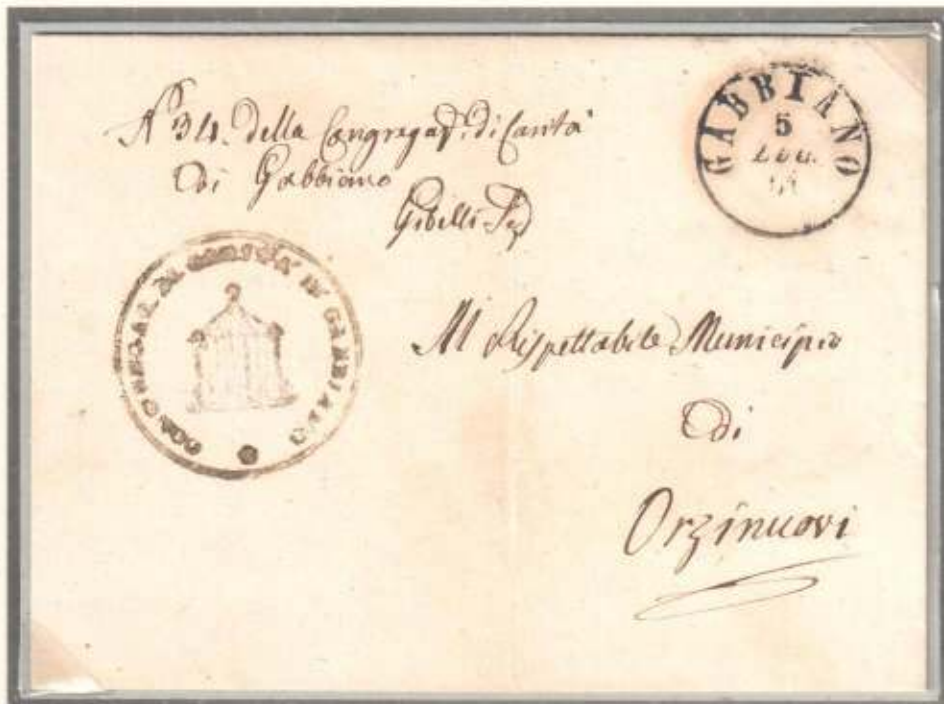 N° 34. della Congregaz. di Carità
di Gabbiano
Gibelli
GABBIANO
5
LUG.
CONGREGAZ. DI CARITA' IN GABBIANO
Al Rispettabile Municipio
di
Orzinuovi